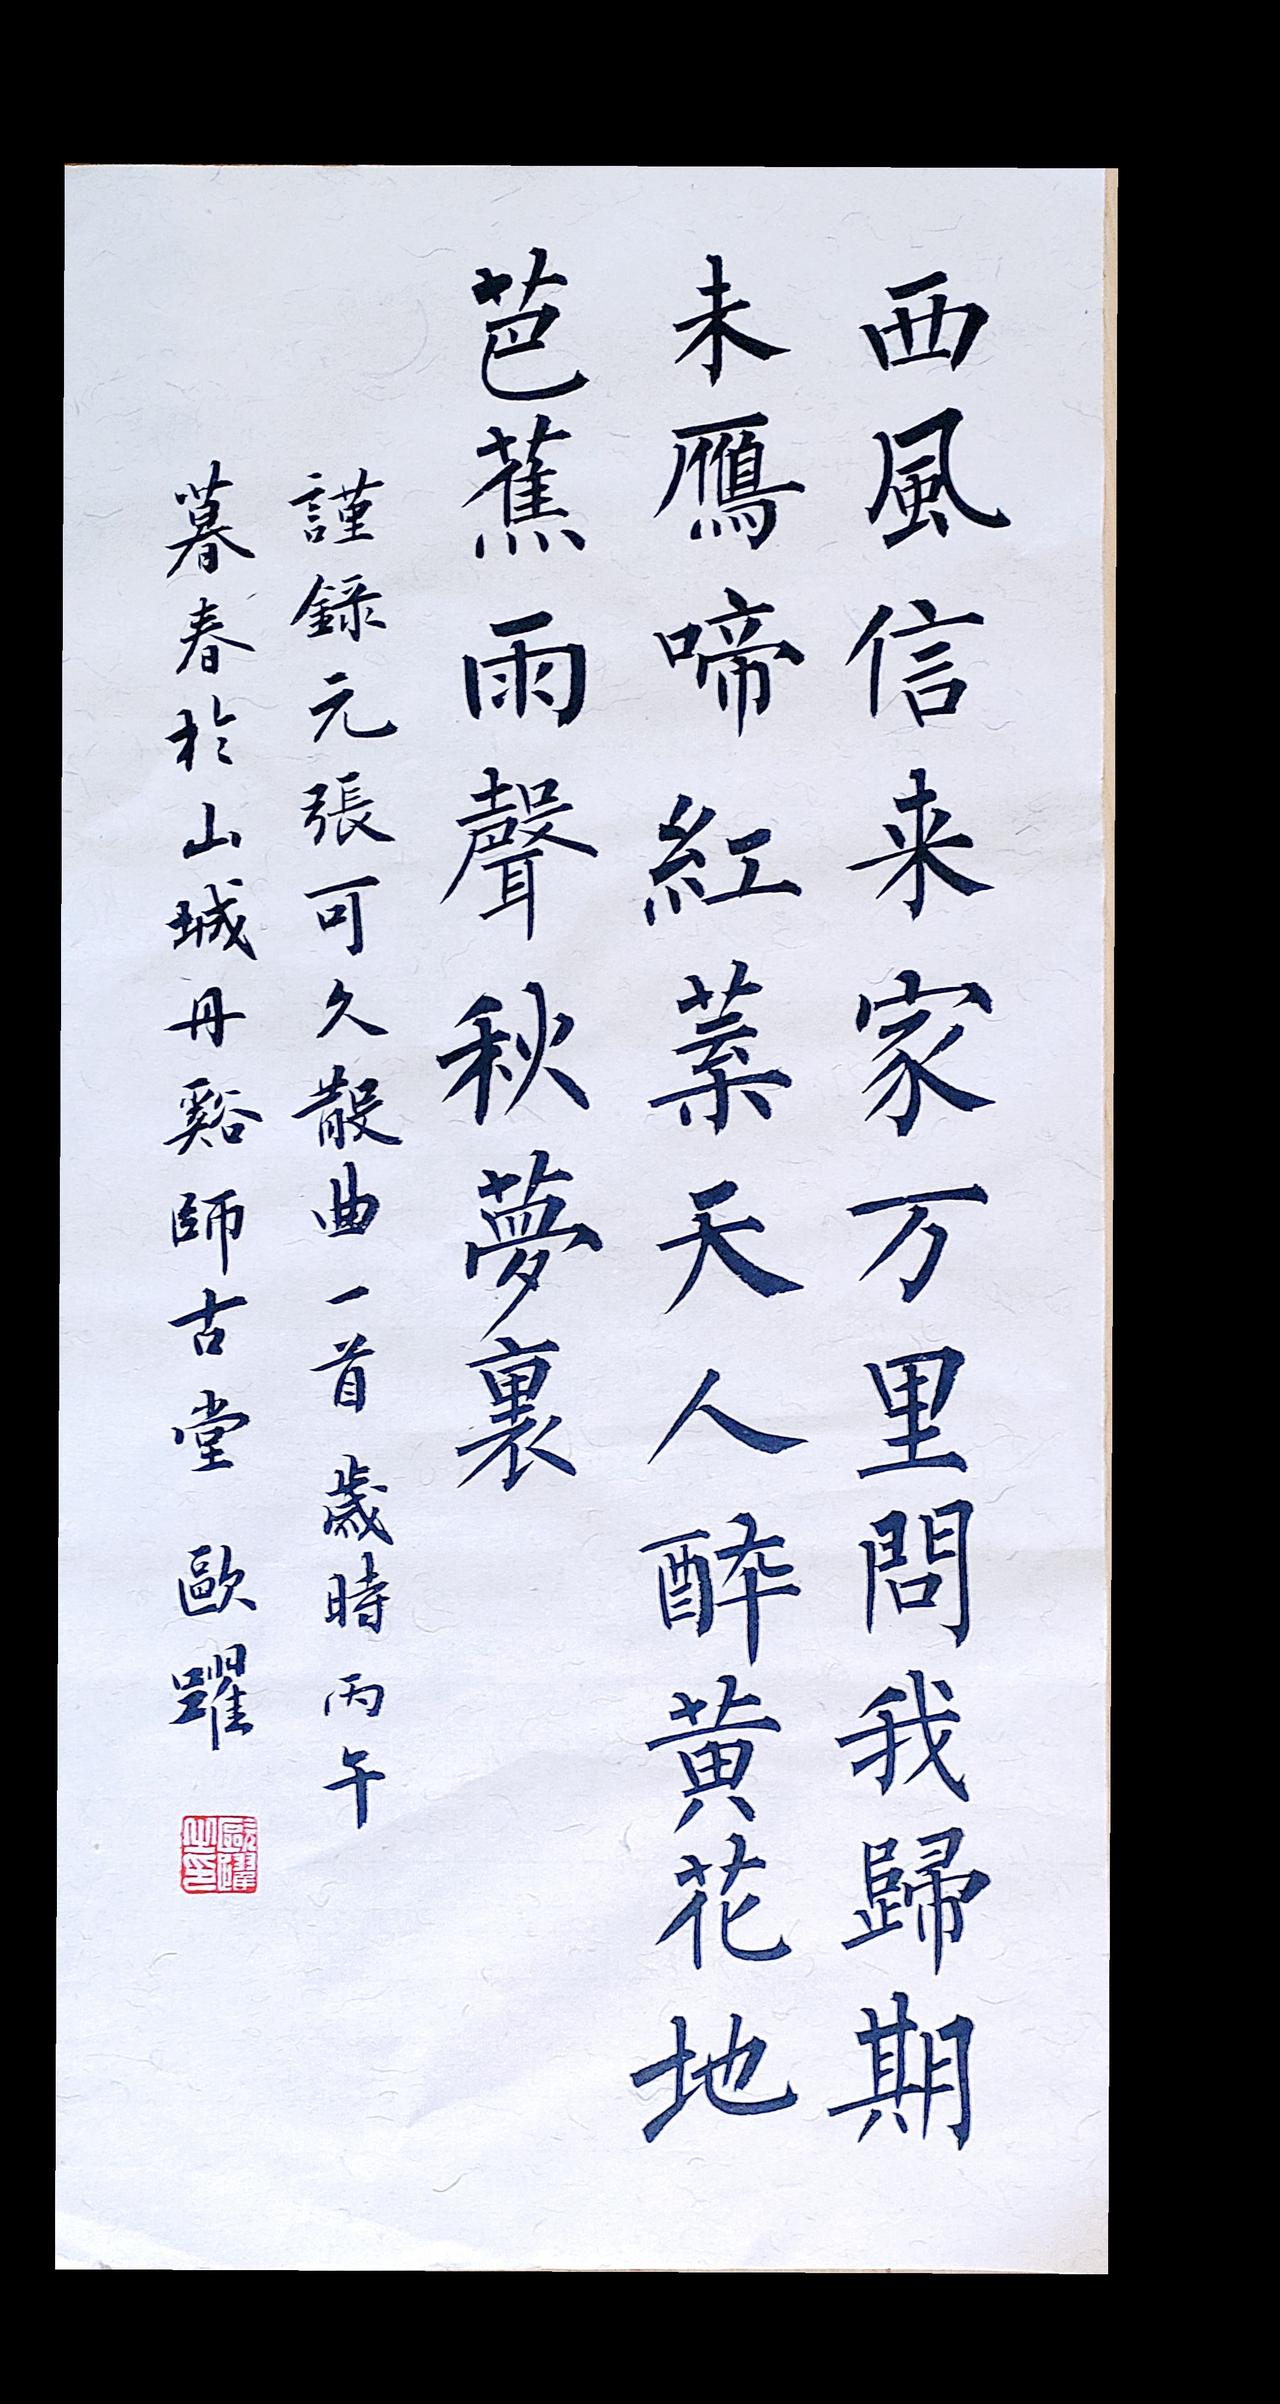 西風信来家万里問我歸期
未鴈啼紅葉天人醉黄花地
芭蕉雨聲秋夢裏
謹録元張可久散曲一首歲時丙午
暮春於山城丹谿師古堂 歐躍
歐躍之印